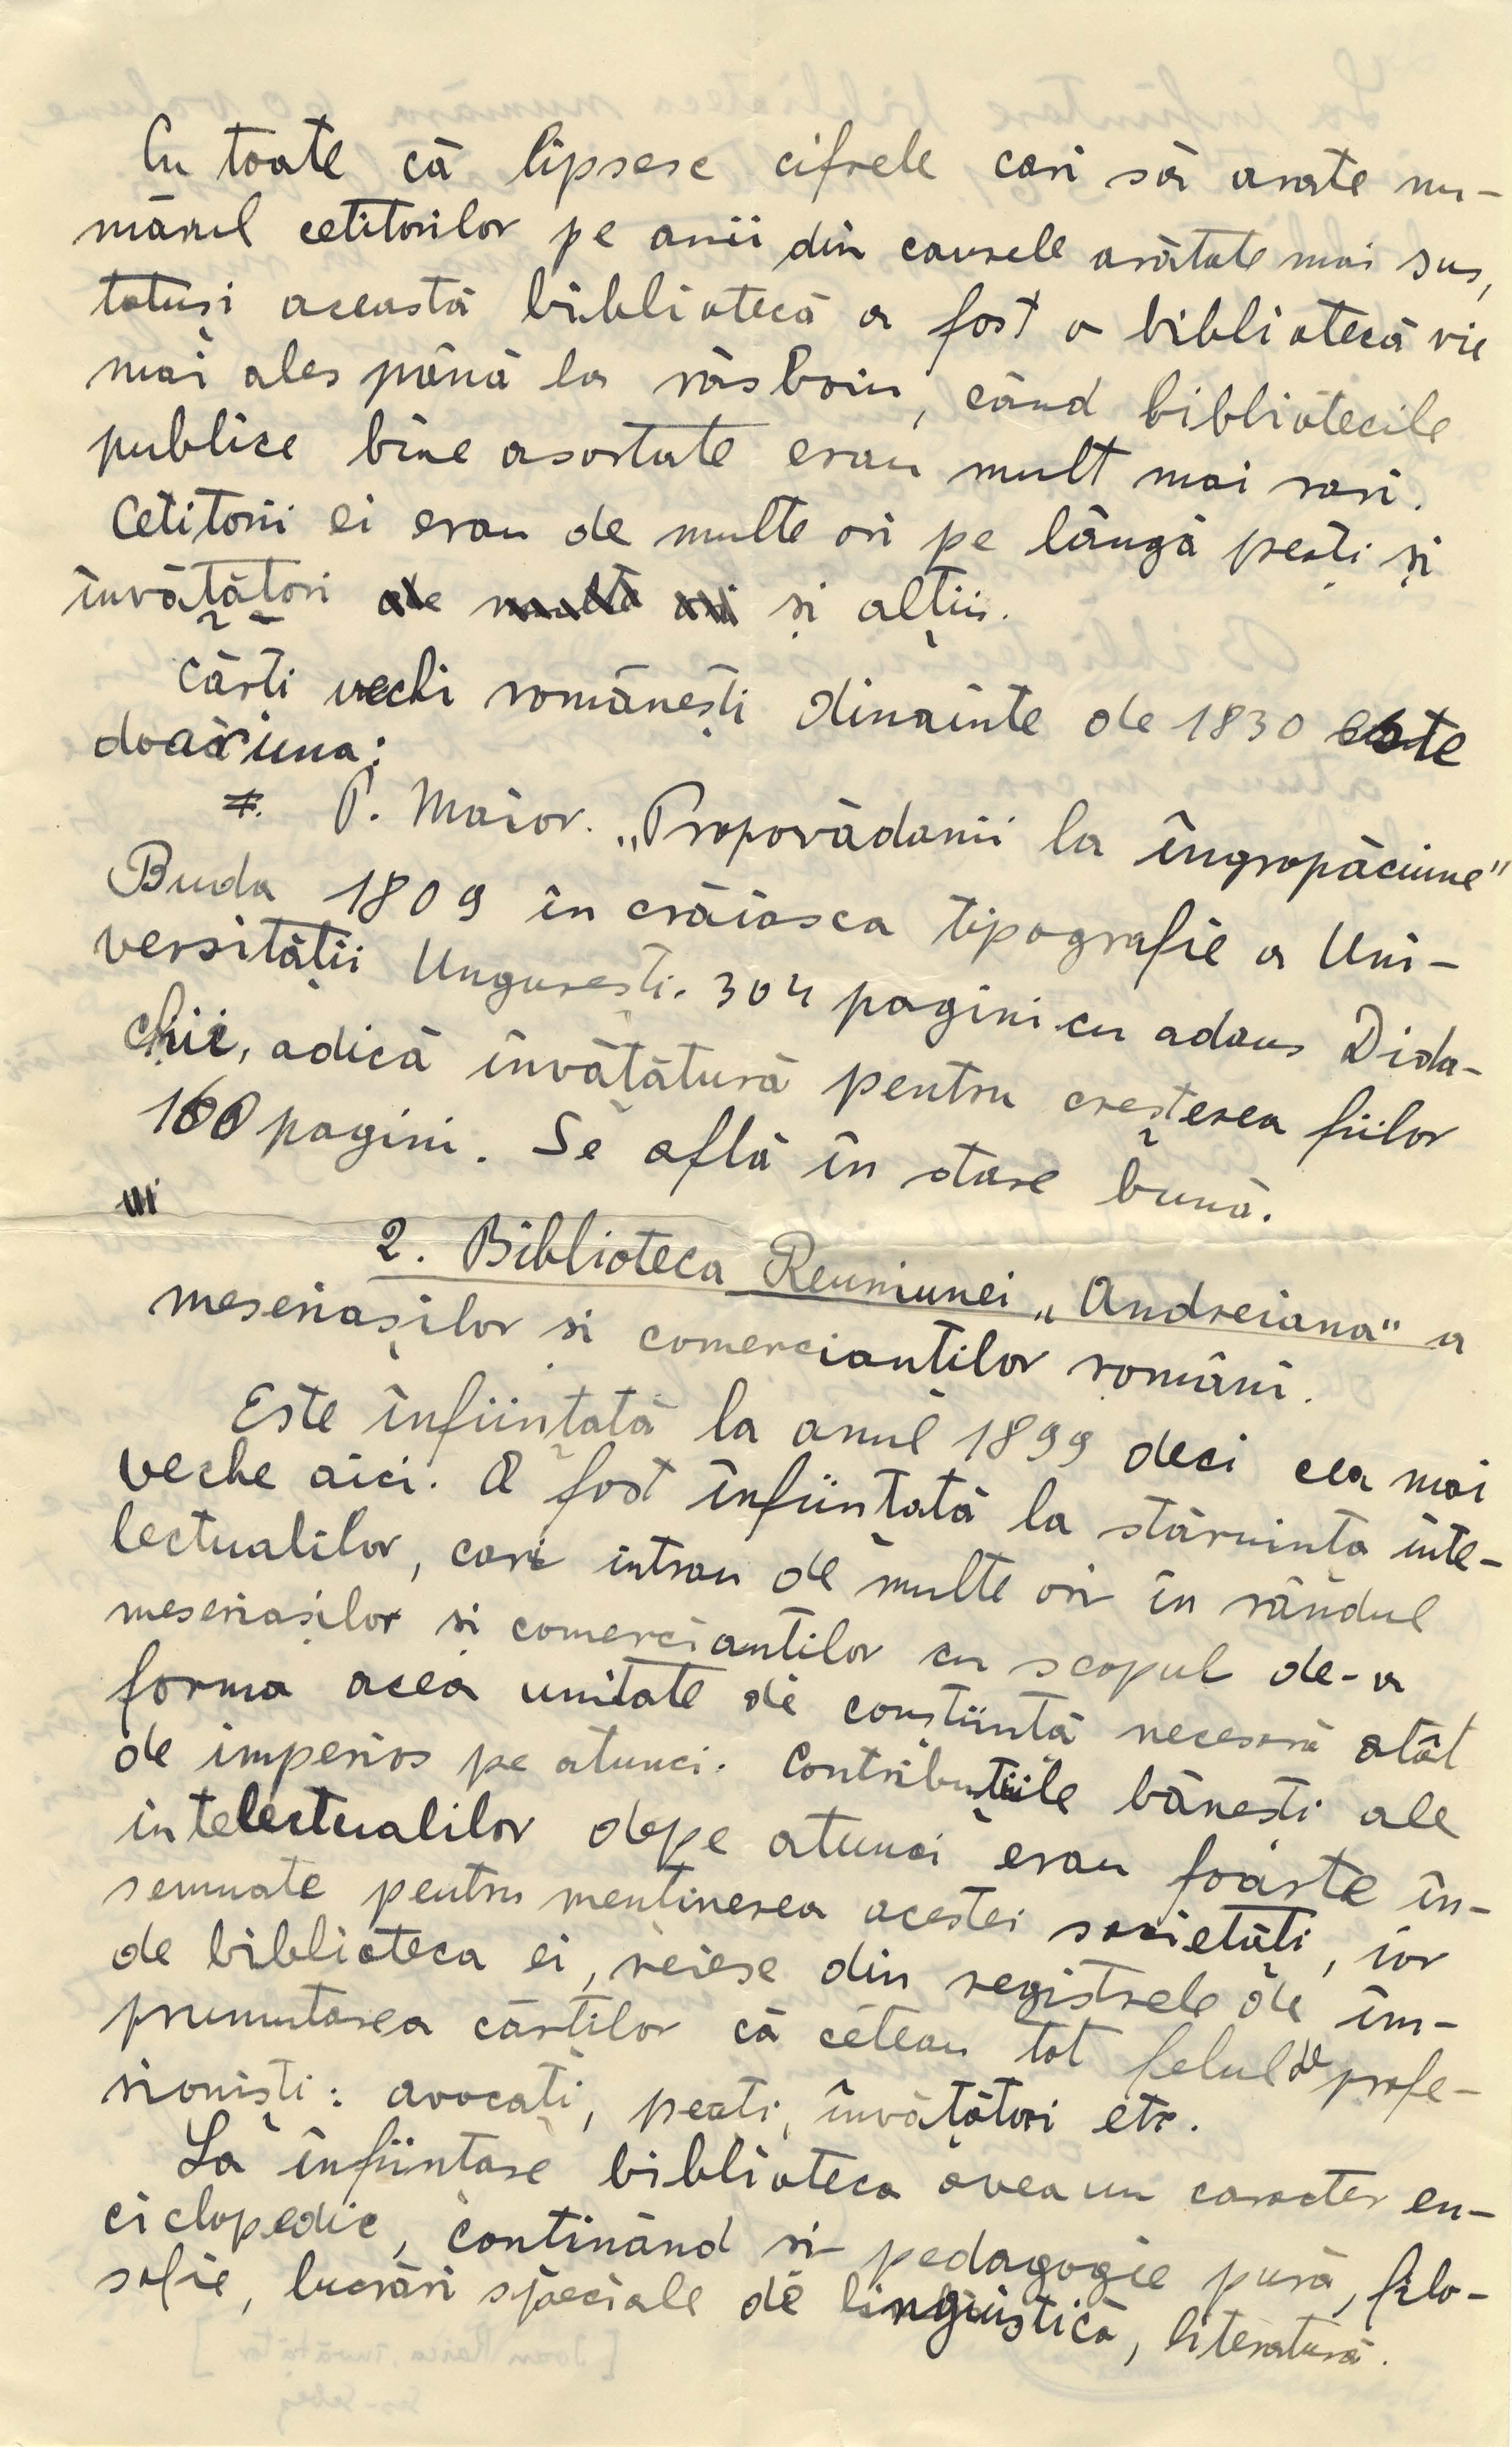 Cu toate că lipsesc cifrele cari să arate nu-
mărul cetitorilor pe anii din causele arătate mai sus,
totuși această bibliotecă a fost o bibliotecă vie
mai ales până la răsboiu, când bibliotecile
publice bine asortate erau mult mai rari.
Cetitorii ei erau de multe ori pe lângă preoți și
învățători de multe ori și alții.
Cărți vechi românești dinainte de 1830 este
doar una:
P. Maior. „Propovădanii la îngropăciune"
Buda 1809 în crăiasca tipografie a Uni-
versității Ungurești. 304 pagini cu adaus Dida-
chii, adică învățătură pentru creșterea fiilor
160 pagini. Se află în stare bună.
2. Biblioteca Reuniunei „Andreiana" a
meseriașilor si comercianților români.
Este înființată la anul 1899 deci cea mai
veche aici. A fost înființată la stăruința inte-
lectualilor, cari intrau de multe ori în rândul
meseriașilor si comercianților cu scopul de-a
forma acea unitate de conștiință necesară atât
de imperios pe atunci. Contribuțiile bănești ale
intelectualilor depe atunci erau foarte în-
semnate pentru menținerea acestei societăți, iar
de biblioteca ei, reiese din registrele de îm-
prumutarea cărților că ceteau tot felul de profe-
sioniști: avocați, preoți, învățători etc.
La înființare biblioteca avea un caracter en-
ciclopedic, conținând si pedagogie pură, filo-
sofie, lucrări speciale de linguistică, literatură.